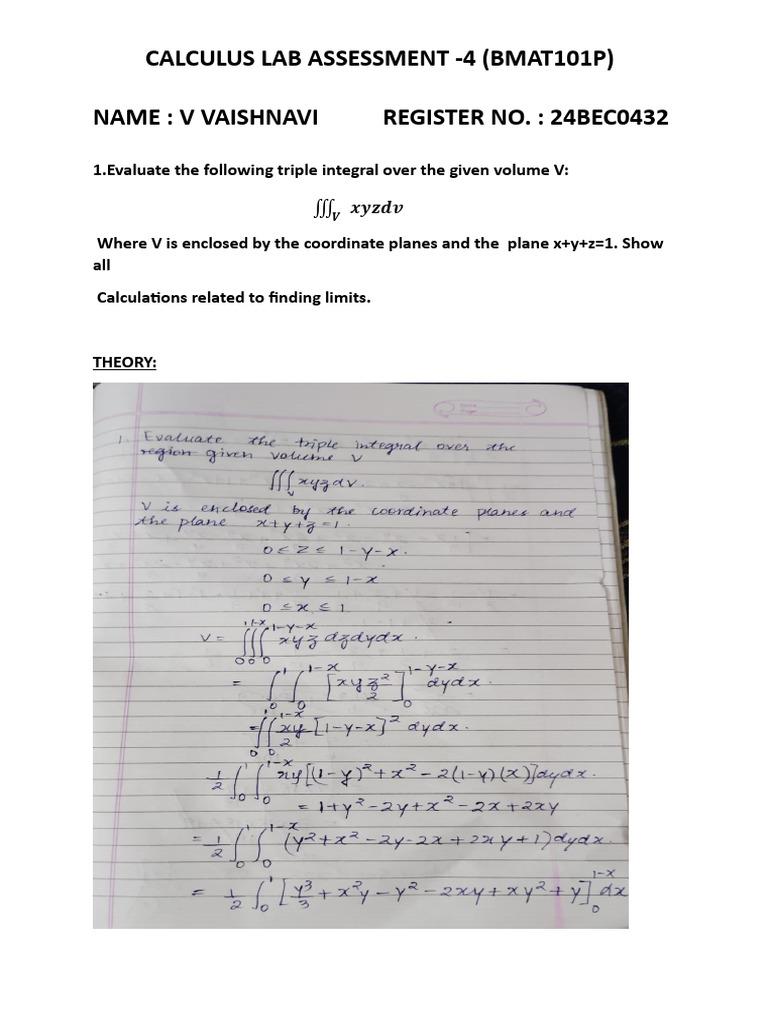 CALCULUS LAB ASSESSMENT -4 (BMAT101P)
NAME : V VAISHNAVI REGISTER NO. : 24BEC0432
1.Evaluate the following triple integral over the given volume V:
∭_V xyzdv
Where V is enclosed by the coordinate planes and the plane x+y+z=1. Show
all
Calculations related to finding limits.
THEORY:
1. Evaluate the triple integral over the
region given volume V
∭_V xyzdv.
V is enclosed by the coordinate planes and
the plane x+y+z=1.
0≤z≤1-y-x.
0≤y≤1-x
0≤x≤1
V = ∫_0^1 ∫_0^{1-x} ∫_0^{1-y-x} xyz dzdydx.
= ∫_0^1 ∫_0^{1-x} [xyz²/2]_0^{1-y-x} dydx.
= ∫_0^1 ∫_0^{1-x} xy/2 [1-y-x]² dydx.
1/2 ∫_0^1 ∫_0^{1-x} xy[(1-y)²+x²-2(1-y)(x)]dydx.
= 1+y²-2y+x²-2x+2xy
= 1/2 ∫_0^1 ∫_0^{1-x} (y²+x²-2y-2x+2xy+1)dydx.
= 1/2 ∫_0^1 [y³/3+x²y-y²-2xy+xy²+y]_0^{1-x} dx